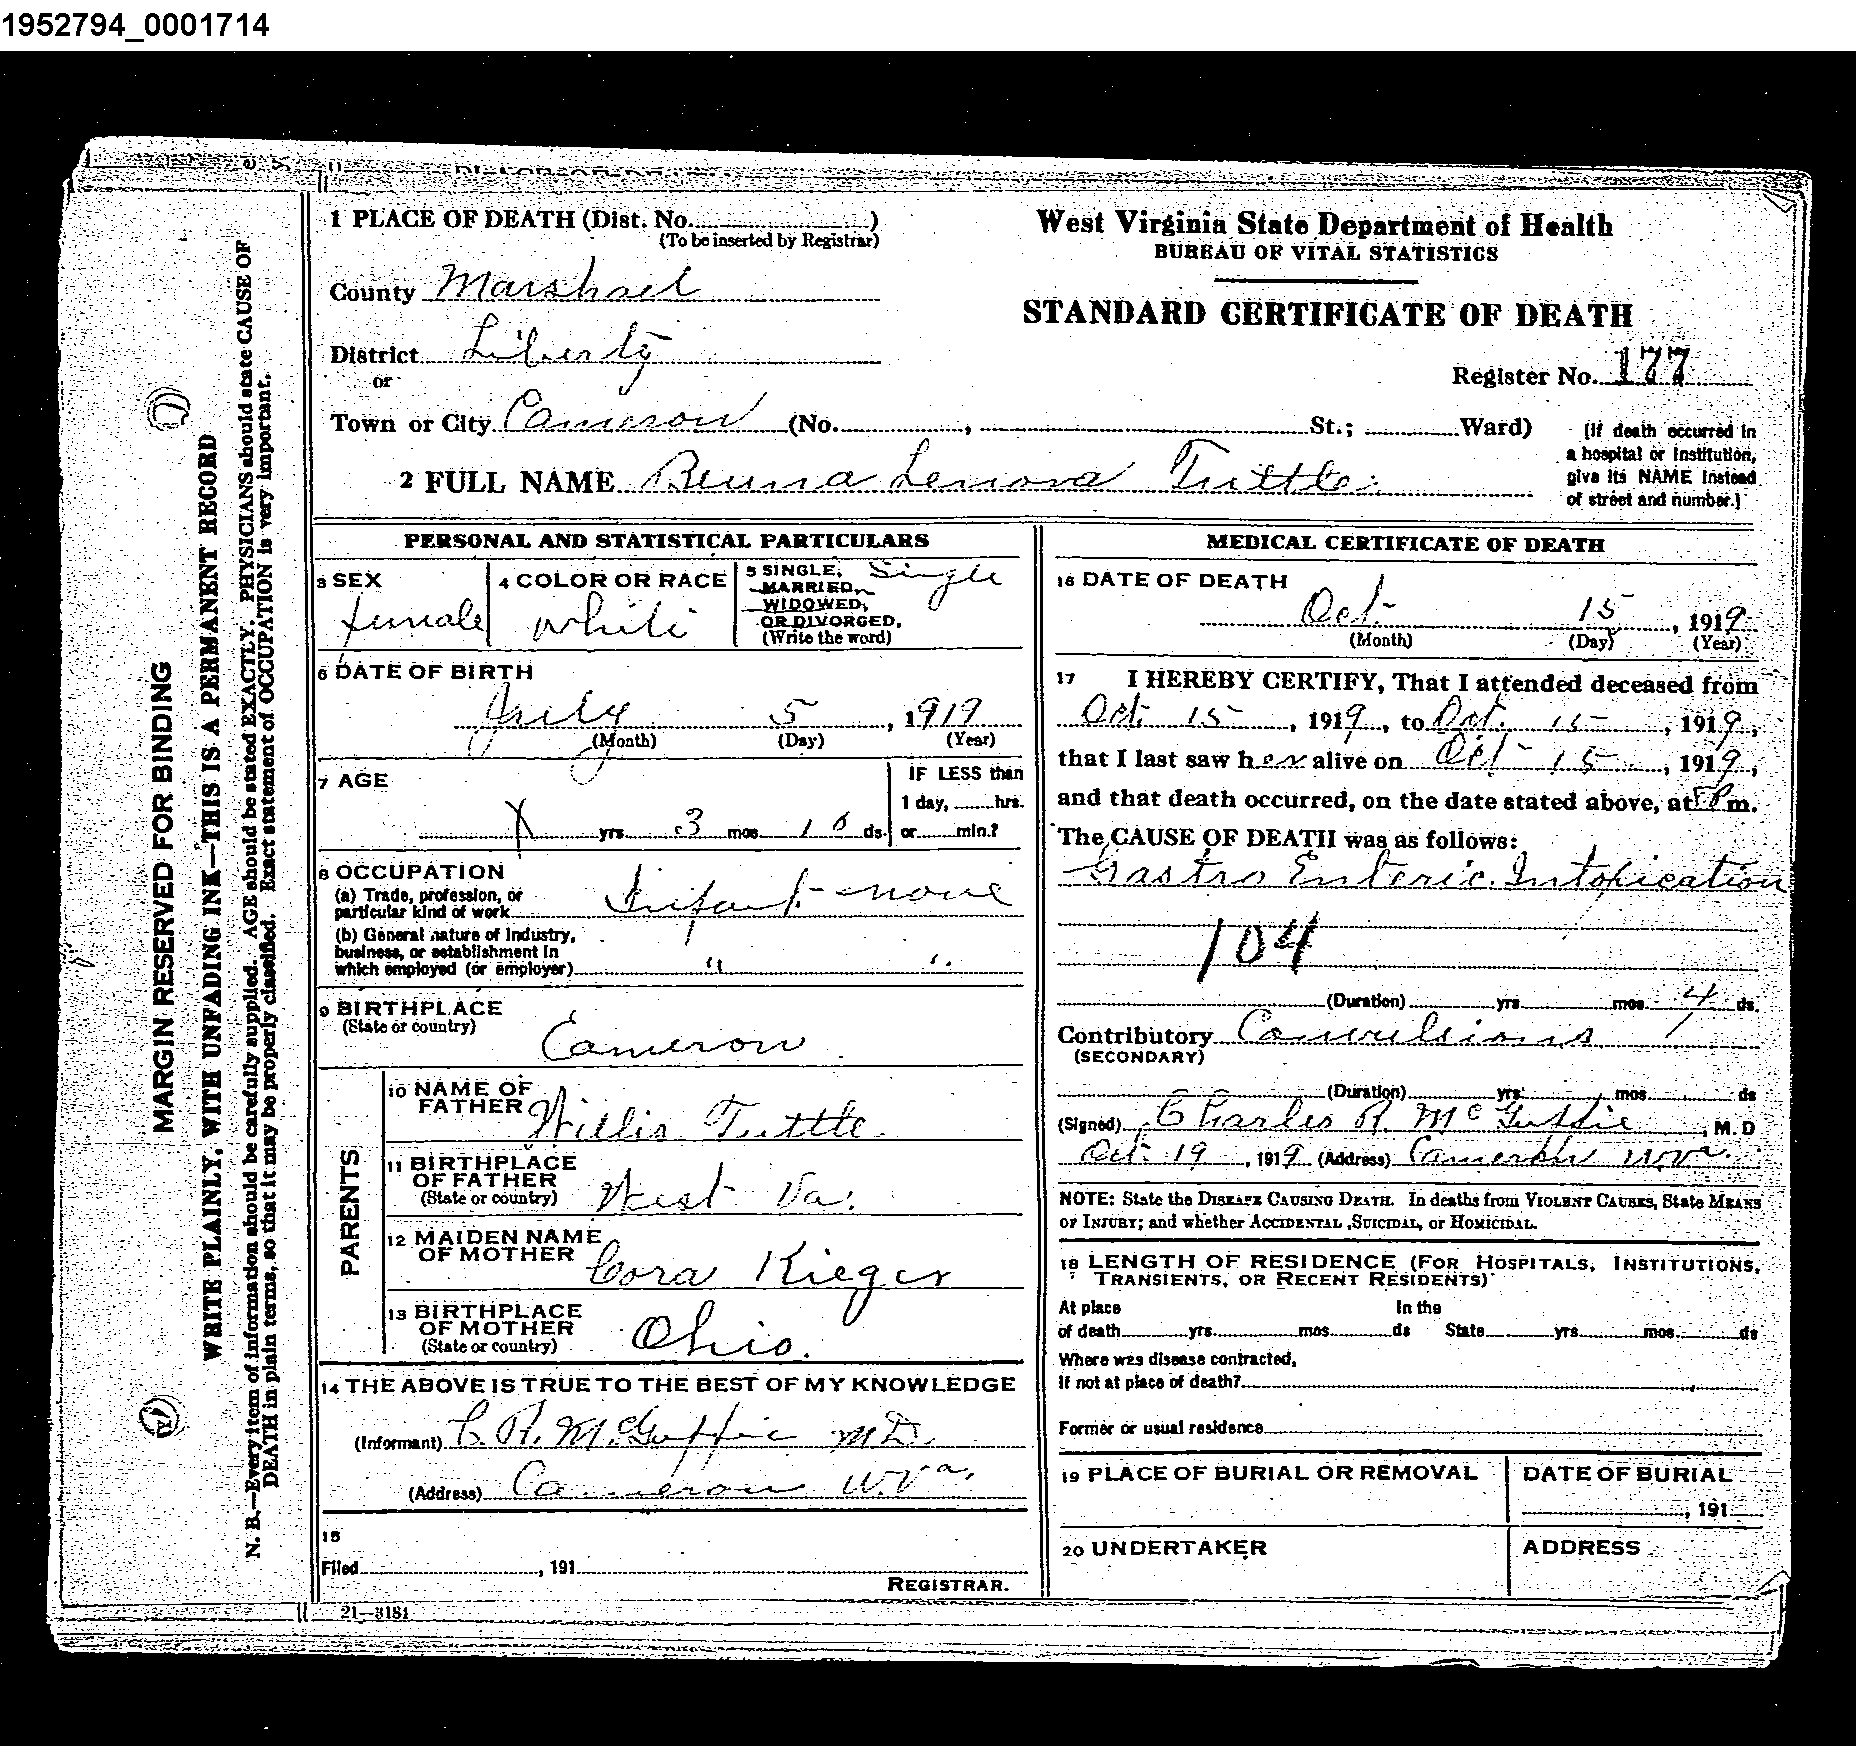 1952794_0001714
MARGIN RESERVED FOR BINDING
WRITE PLAINLY, WITH UNFADING INK—THIS IS A PERMANENT RECORD
N. B.—Every item of information should be carefully supplied. AGE should be stated EXACTLY. PHYSICIANS should state CAUSE OF
DEATH in plain terms, so that it may be properly classified. Exact statement of OCCUPATION is very important.
1 PLACE OF DEATH (Dist. No. )
(To be inserted by Registrar)
County Marshall
District Liberty
or
Town or City Cameron (No. , St.; Ward)
West Virginia State Department of Health
BUREAU OF VITAL STATISTICS
STANDARD CERTIFICATE OF DEATH
Register No. 177
(If death occurred in
a hospital or institution,
give its NAME instead
of street and number.)
2 FULL NAME Lenora Tuttle
PERSONAL AND STATISTICAL PARTICULARS
3 SEX
female
4 COLOR OR RACE
white
5 SINGLE, Single
MARRIED,
WIDOWED,
OR DIVORCED.
(Write the word)
6 DATE OF BIRTH
July 5, 1919
(Month) (Day) (Year)
7 AGE
X yrs 3 mos 10 ds.
IF LESS than
1 day, hrs.
or min.?
8 OCCUPATION
(a) Trade, profession, or
particular kind of work Infant - none
(b) General nature of industry,
business, or establishment in
which employed (or employer) " "
9 BIRTHPLACE
(State or country)
Cameron
PARENTS
10 NAME OF
FATHER Willis Tuttle
11 BIRTHPLACE
OF FATHER
(State or country) West Va.
12 MAIDEN NAME
OF MOTHER Cora Kieger
13 BIRTHPLACE
OF MOTHER
(State or country) Ohio.
14 THE ABOVE IS TRUE TO THE BEST OF MY KNOWLEDGE
(Informant) C. R. McGuffie M.D.
(Address) Cameron W.Va.
15
Filed , 191
REGISTRAR.
21—3181
MEDICAL CERTIFICATE OF DEATH
16 DATE OF DEATH
Oct. 15, 1919
(Month) (Day) (Year)
17 I HEREBY CERTIFY, That I attended deceased from
Oct. 15, 1919, to Oct. 15, 1919,
that I last saw her alive on Oct 15, 1919,
and that death occurred, on the date stated above, at m.
The CAUSE OF DEATH was as follows:
Gastro Enteric Intoxication
104
(Duration) yrs mos 4 ds.
Contributory Convulsions
(SECONDARY)
(Duration) yrs mos ds
(Signed) Charles R. McGuffie, M. D
Oct. 19, 1919 (Address) Cameron W.Va.
NOTE: State the DISEASE CAUSING DEATH. In deaths from VIOLENT CAUSES, State MEANS
OF INJURY; and whether ACCIDENTAL, SUICIDAL, or HOMICIDAL.
18 LENGTH OF RESIDENCE (FOR HOSPITALS, INSTITUTIONS,
TRANSIENTS, OR RECENT RESIDENTS)
At place In the
of death yrs. mos. ds State yrs. mos. ds
Where was disease contracted,
If not at place of death?
Former or usual residence
19 PLACE OF BURIAL OR REMOVAL
DATE OF BURIAL
, 191
20 UNDERTAKER
ADDRESS